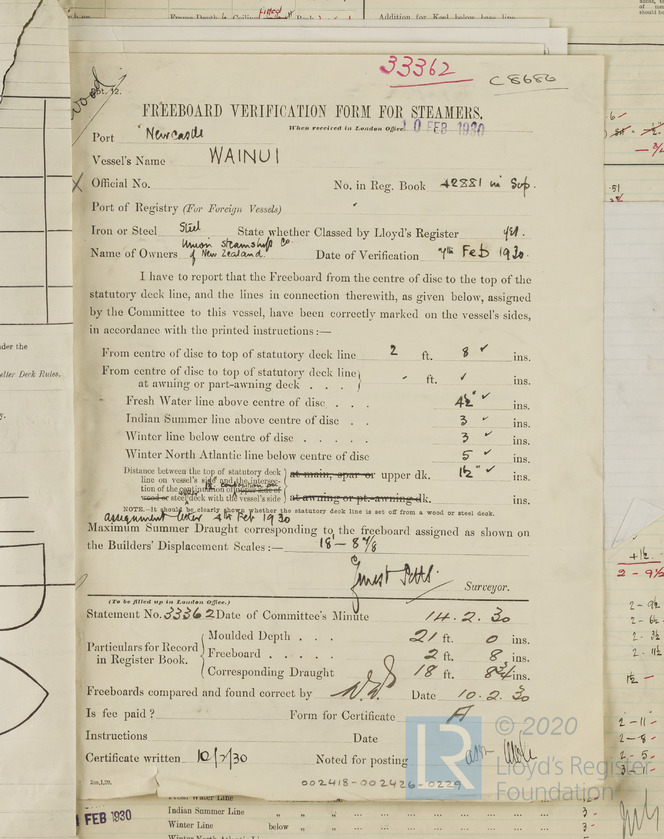 33362
C 8686
FREEBOARD VERIFICATION FORM FOR STEAMERS.
When received in London Office 10 FEB 1930
Port Newcastle
Vessel's Name WAINUI
Official No. No. in Reg. Book 42881 in Sup.
Port of Registry (For Foreign Vessels)
Iron or Steel Steel State whether Classed by Lloyd's Register yes.
Union Steamship Co.
Name of Owners of New Zealand. Date of Verification 7th Feb 1930.
I have to report that the Freeboard from the centre of disc to the top of the
statutory deck line, and the lines in connection therewith, as given below, assigned
by the Committee to this vessel, have been correctly marked on the vessel's sides,
in accordance with the printed instructions :—
From centre of disc to top of statutory deck line 2 ft. 8 ✓ ins.
From centre of disc to top of statutory deck line
at awning or part-awning deck . . . - ft. ✓ ins.
Fresh Water line above centre of disc . . . 4½" ✓ ins.
Indian Summer line above centre of disc . . 3 ✓ ins.
Winter line below centre of disc . . . . . 3 ✓ ins.
Winter North Atlantic line below centre of disc 5 ✓ ins.
Distance between the top of statutory deck
line on vessel's side and the intersec-
tion of the continuation of upper side of
wood or steel deck with the vessel's side
at main, spar or upper dk. 1½" ✓ ins.
at awning or pt.-awning dk. ins.
NOTE.—It should be clearly shown whether the statutory deck line is set off from a wood or steel deck.
assignment letter 4th Feb 1930
Maximum Summer Draught corresponding to the freeboard assigned as shown on
the Builders' Displacement Scales :— 18'-8⅞
Surveyor.
(To be filled up in London Office.)
Statement No. 33362 Date of Committee's Minute 14.2.30
Particulars for Record
in Register Book.
Moulded Depth . . . 21 ft. 0 ins.
Freeboard . . . . . 2 ft. 8 ins.
Corresponding Draught 18 ft. 8¾ ins.
Freeboards compared and found correct by Date 10.2.30
Is fee paid? Form for Certificate A
Instructions Date
Certificate written 10/2/30 Noted for posting
002418-002426-0229
© 2020
Lloyd's Register
Foundation
FEB 1930
Indian Summer Line
Winter Line below